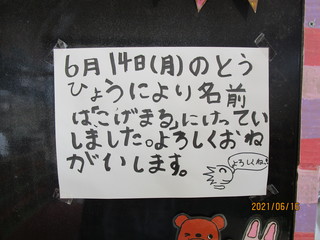 6月14日(月)のとう
ひょうにより名前
は「こげまる」にけってい
しました。よろしくおね
がいします。
よろしくね
2021/06/16